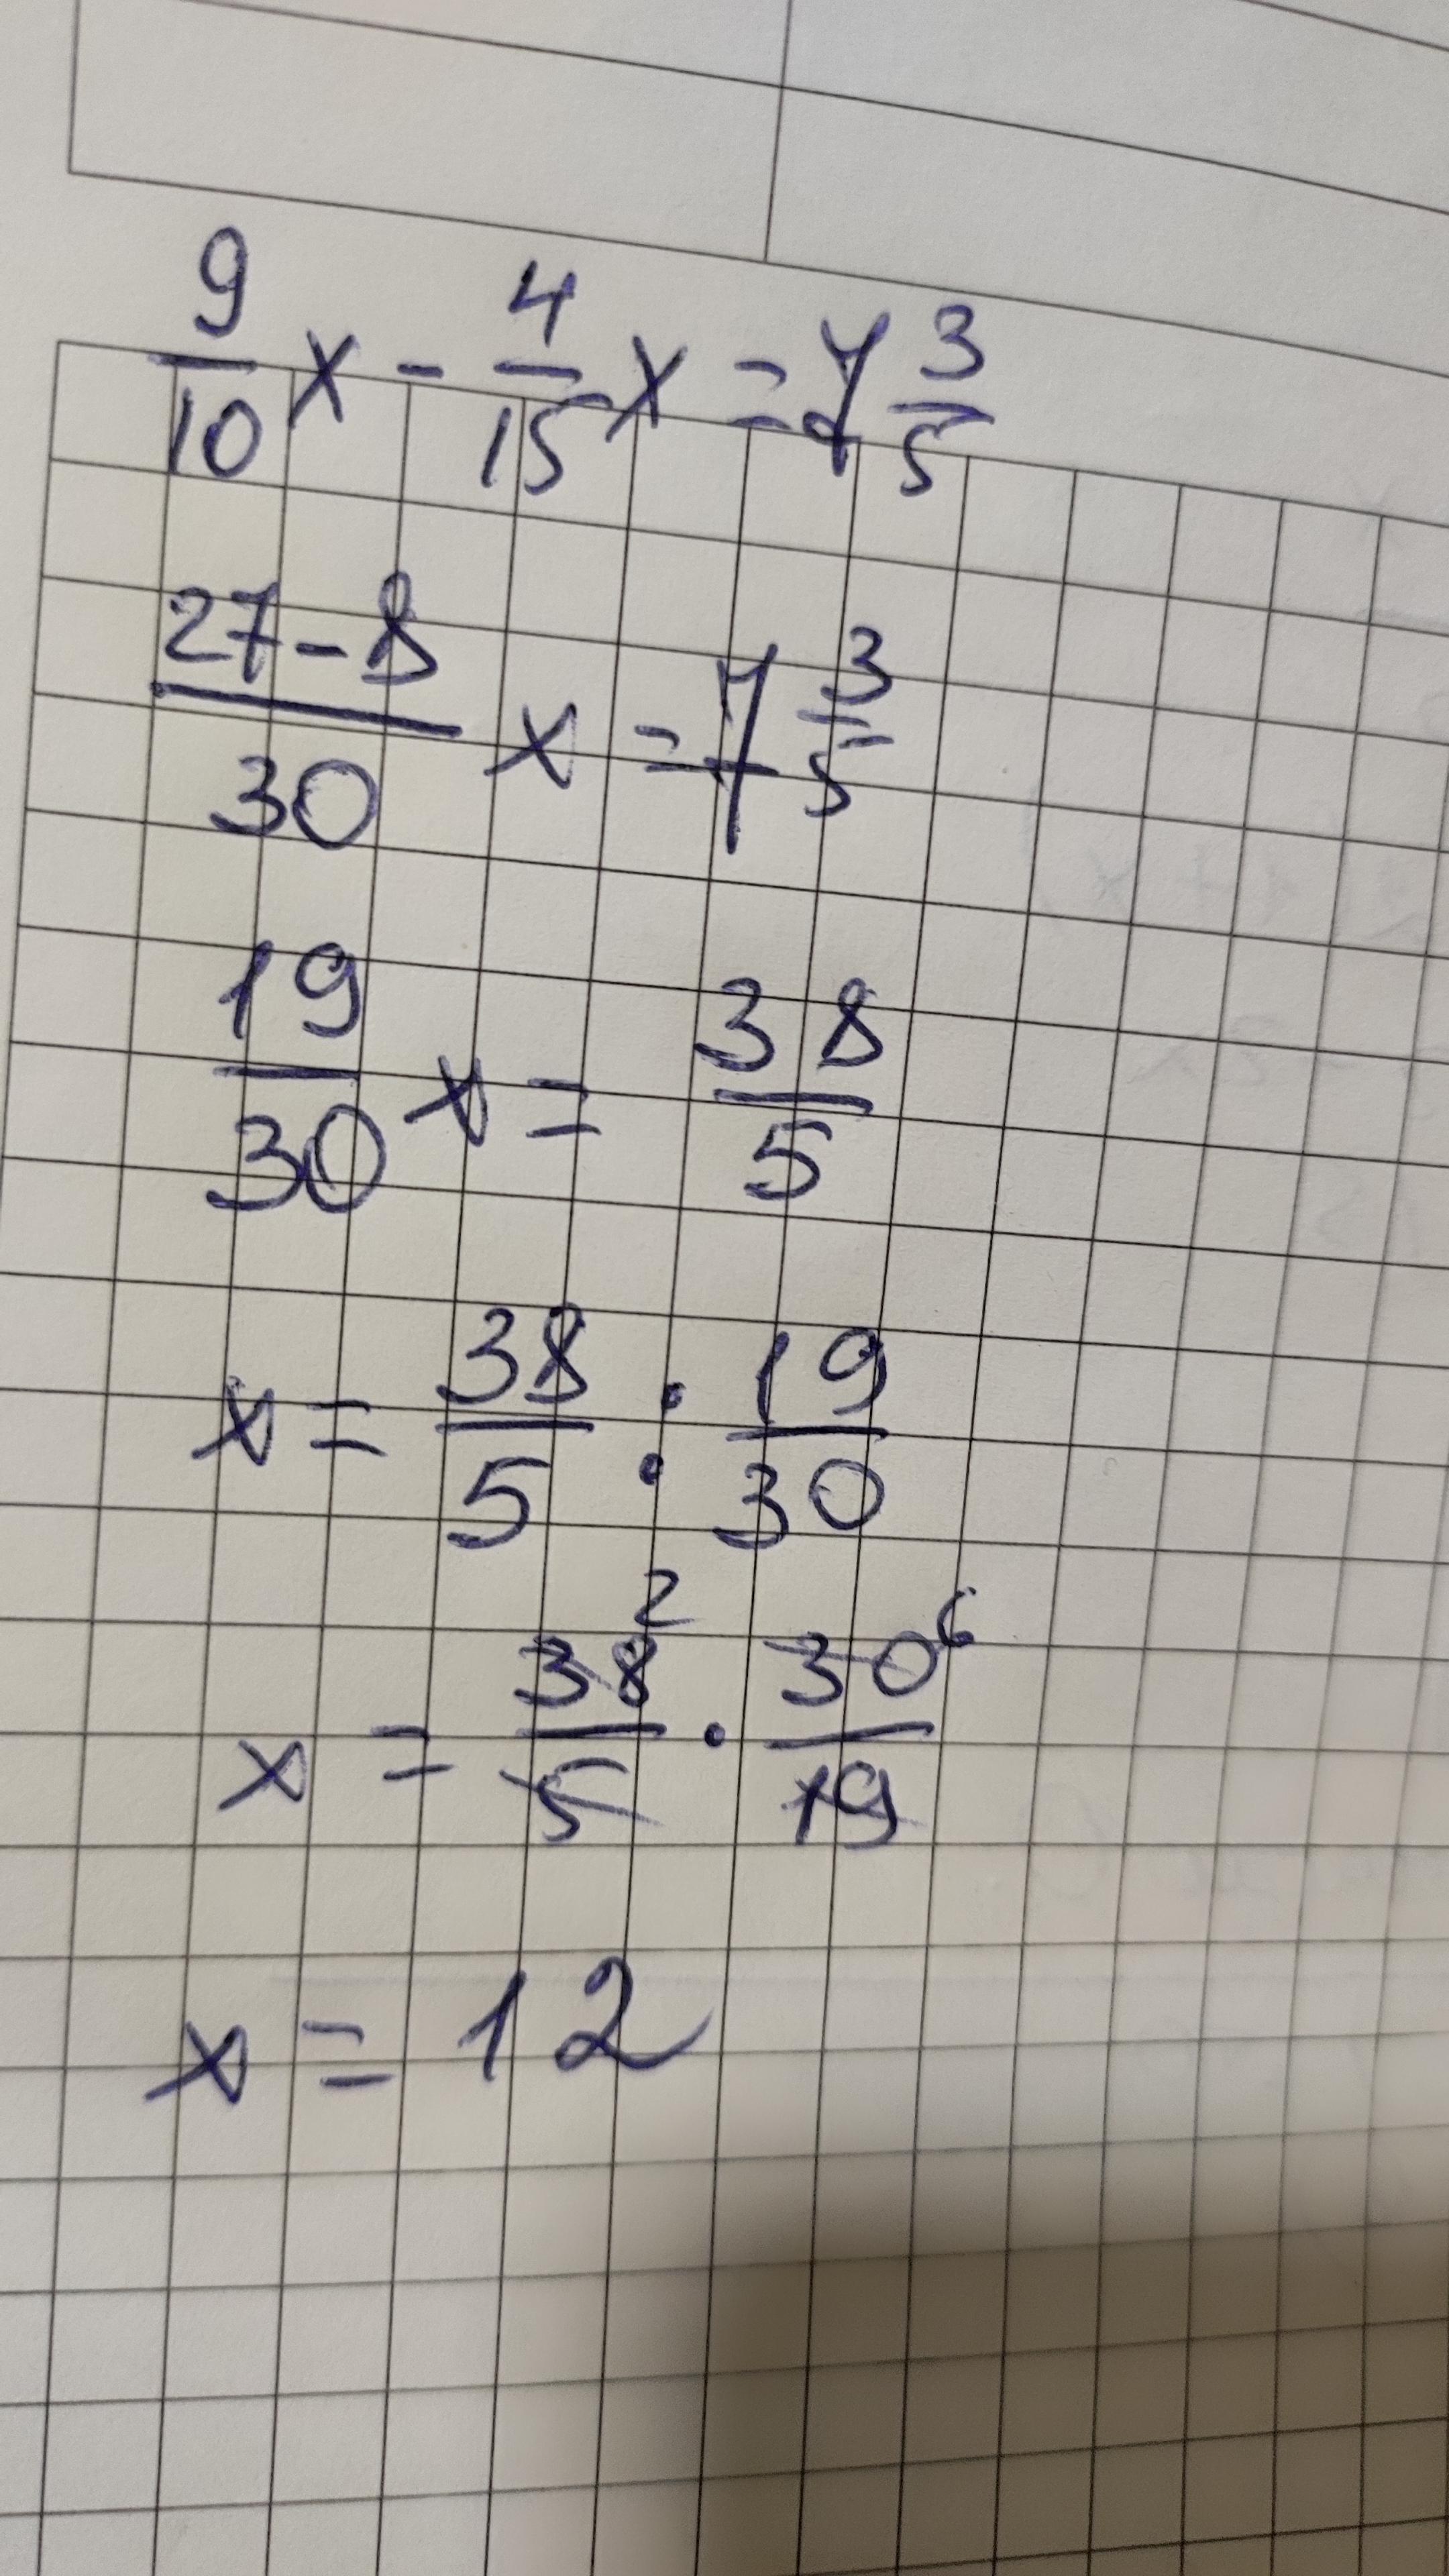 9/10 x - 4/15 x = 7 3/5
27-8/30 x = 7 3/5
19/30 x = 38/5
x = 38/5 : 19/30
x = 38²/5 · 30⁶/19
x = 12